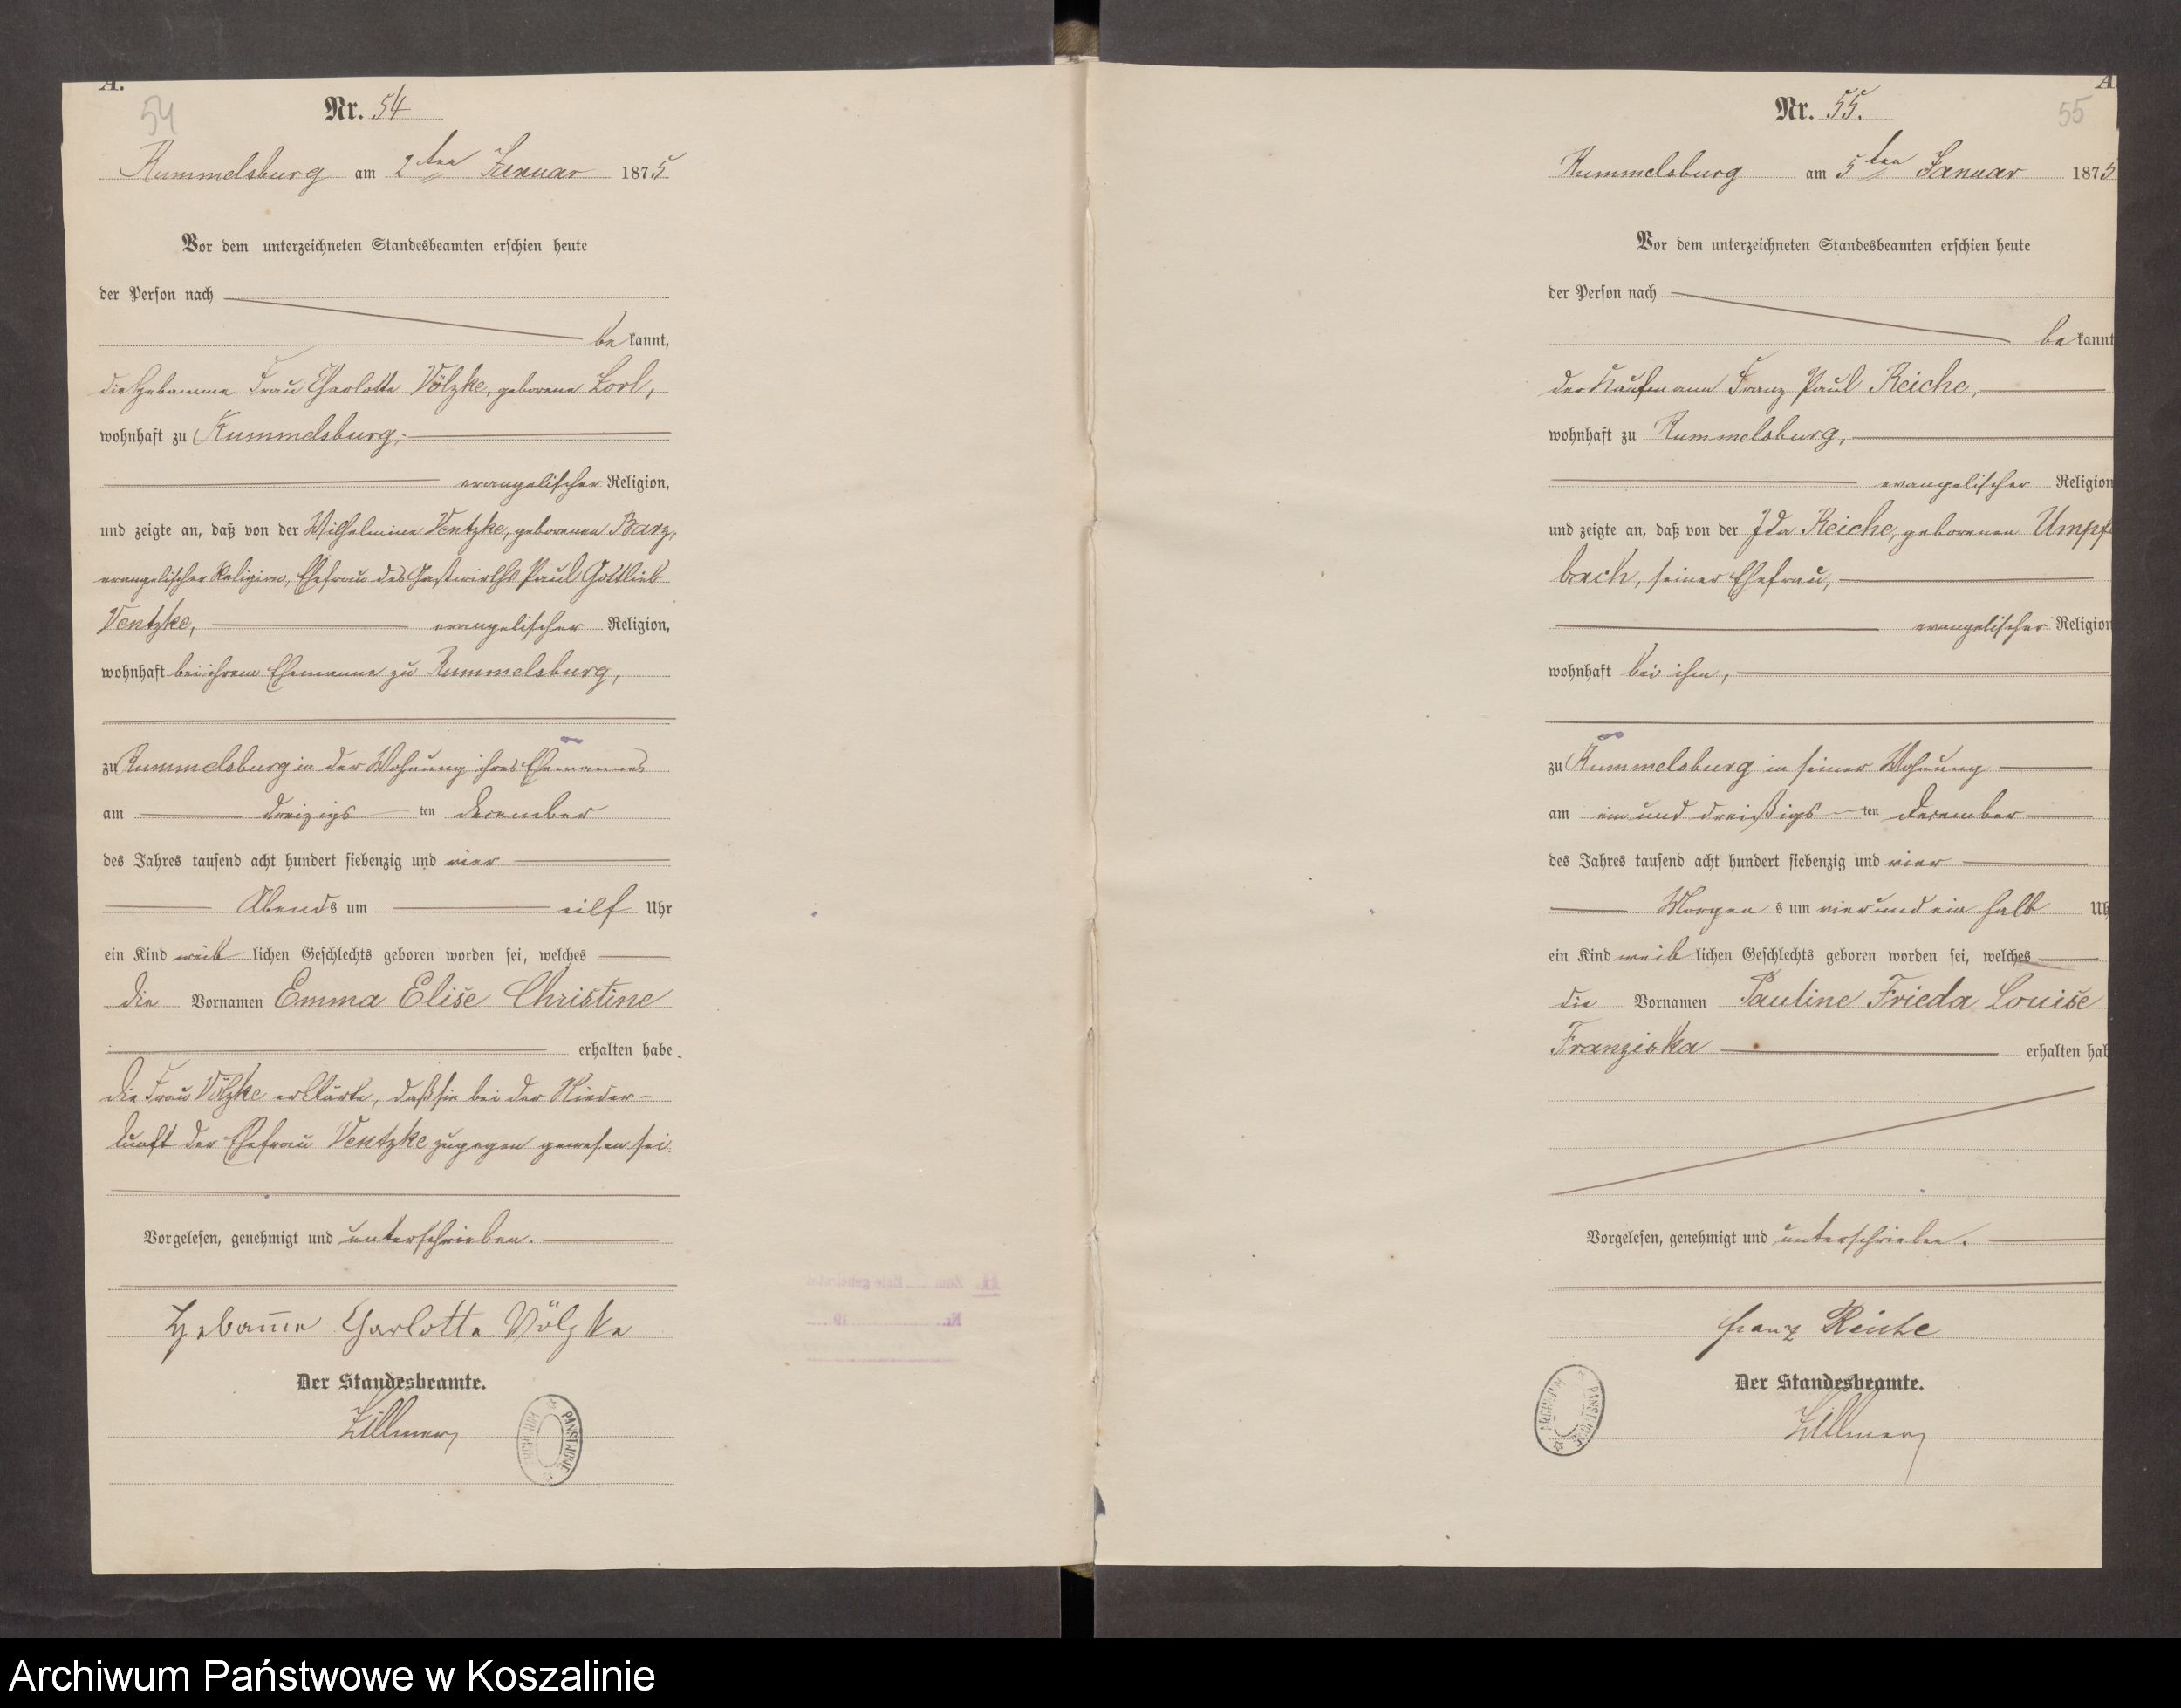 A.
54
Nr. 54
Rummelsburg am 2ten Januar 1875
Vor dem unterzeichneten Standesbeamten erschien heute
der Person nach
bekannt,
die Hebamme Frau Charlotte Völzke, geborene
wohnhaft zu Rummelsburg,
evangelischer Religion,
und zeigte an, daß von der Wilhelmine Ventzke, geborenen Barz,
evangelischer Religion, Ehefrau des Gastwirths Paul Gottlieb
Ventzke, evangelischer Religion,
wohnhaft bei ihrem Ehemanne zu Rummelsburg,
zu Rummelsburg in der Wohnung ihres Ehemannes
am dreizigsten December
des Jahres tausend acht hundert siebenzig und vier
Abends um eilf Uhr
ein Kind weiblichen Geschlechts geboren worden sei, welches
die Vornamen Emma Elise Christine
erhalten habe.
Die Frau Völzke erklärte, daß sie bei der Nieder-
kunft der Ehefrau Ventzke zugegen gewesen sei.
Vorgelesen, genehmigt und unterschrieben.
Hebam̄e Charlotte Völzke
Der Standesbeamte.
Zillmer
ARCHIWUM PAŃSTWOWE
A
55
Nr. 55.
Rummelsburg am 5ten Januar 1875
Vor dem unterzeichneten Standesbeamten erschien heute
der Person nach
bekannt
der Kaufmann Franz Paul Reiche,
wohnhaft zu Rummelsburg,
evangelischer Religion
und zeigte an, daß von der Ida Reiche, geborenen Umpfe
bach, seiner Ehefrau,
evangelischer Religion
wohnhaft bei ihm,
zu Rummelsburg in seiner Wohnung
am ein und dreißigsten December
des Jahres tausend acht hundert siebenzig und vier
Morgens um vier und ein halb Uh
ein Kind weiblichen Geschlechts geboren worden sei, welches
die Vornamen Pauline Frieda Louise
Franziska erhalten hab
Vorgelesen, genehmigt und unterschrieben.
Franz Reiche
Der Standesbeamte.
Zillmer
ARCHIWUM PAŃSTWOWE
Archiwum Państwowe w Koszalinie